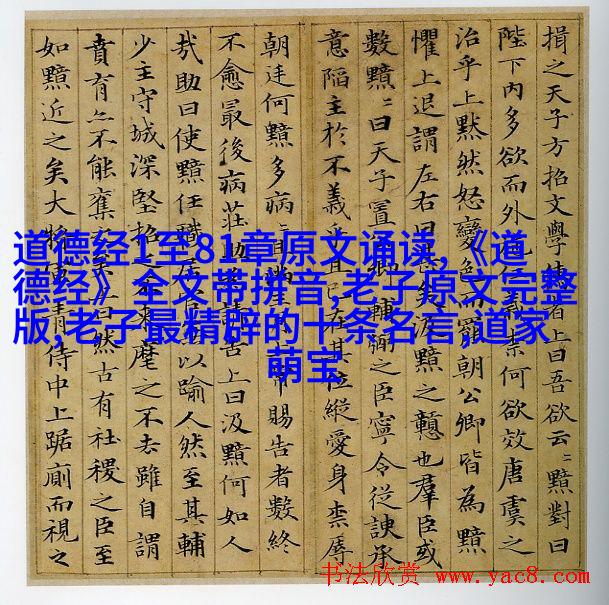 損之天子方招文學者上曰吾欲云〻黯對曰
陛下內多欲而外仁義柰何欲效唐虞之
治乎上默然怒變色而罷朝公卿皆為黯
懼上退謂左右曰甚矣汲黯之戇也羣臣或
數黯〻曰天子置公卿輔弼之臣寧令從諛承
意陷主於不義乎且已在其位縱愛身柰辱
朝廷何黯多病〻且滿賜告者數終
不愈最後病莊助為請告上曰汲黯何如人
㢤助曰使黯任職居以踰人然至其輔
少主守城深堅招之不來麾之不去雖自謂
賁育亦不能奪矣曰然古有社稷之臣至
如黯近之矣大將軍青侍中上踞廁而視之
道德经1至81章原文诵读,《道
德经》全文带拼音,老子原文完整
版,老子最精辟的十条名言,道家
萌宝
书法欣赏 www.yac8.com